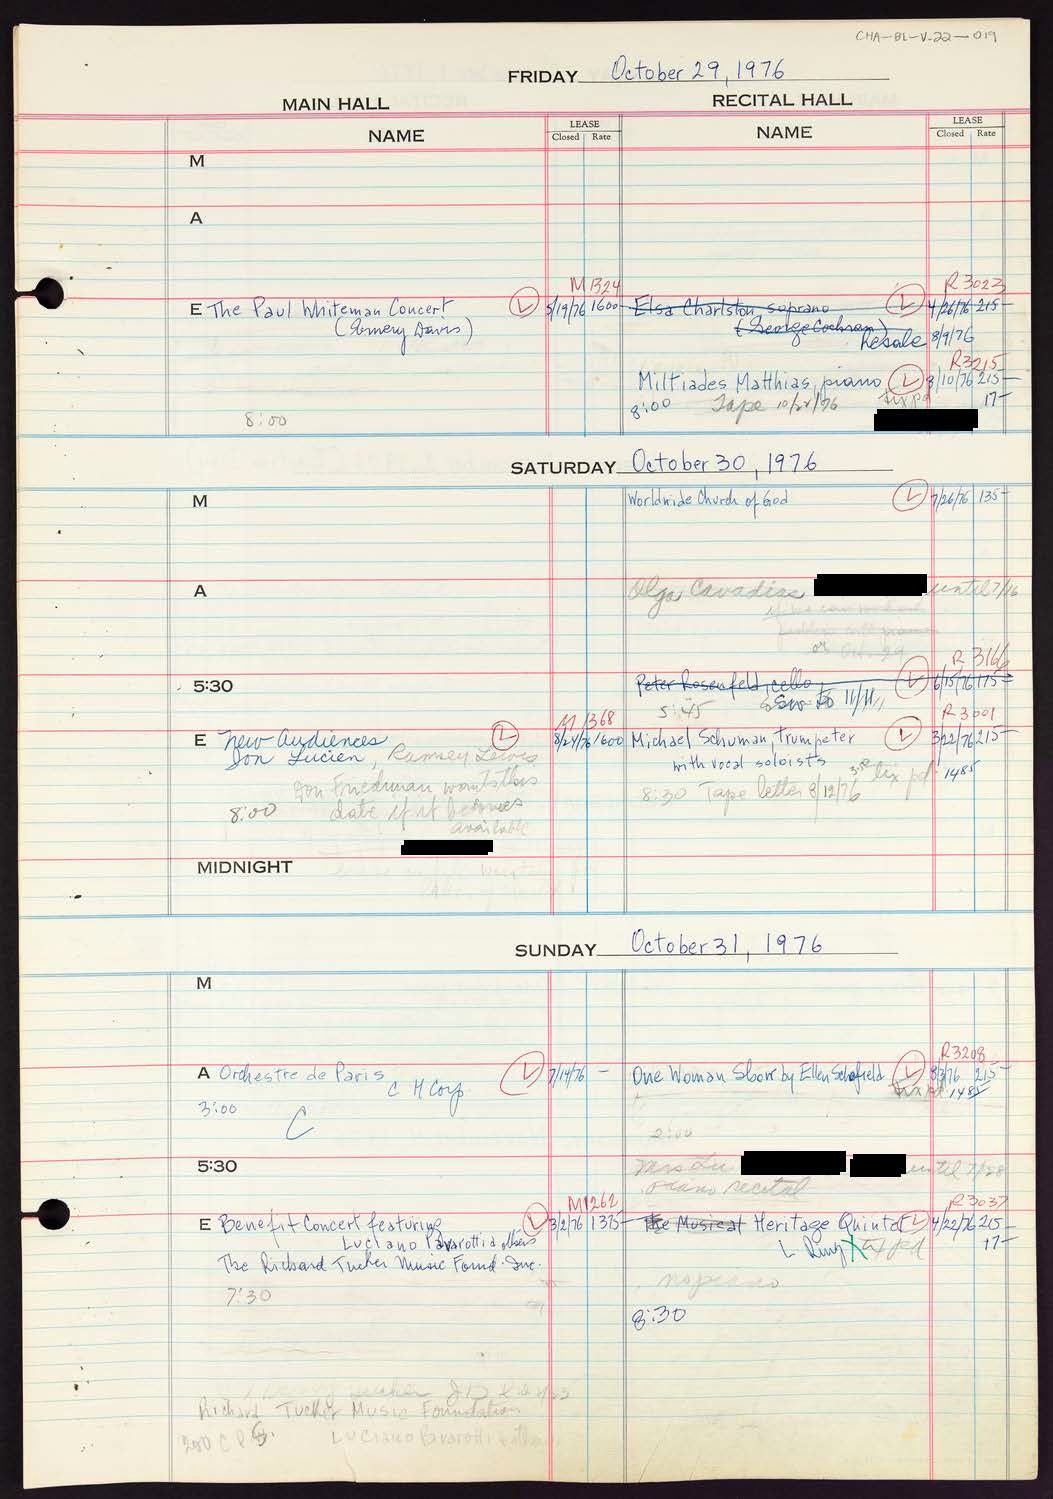 CHA-BL-V-22-019
FRIDAY October 29, 1976
MAIN HALL
RECITAL HALL
NAME
LEASE
Closed Rate
NAME
LEASE
Closed Rate
M
A
M1324
R3023
E The Paul Whiteman Concert L 5/19/76 1600-
(Emery Davis)
Elsa Charlston, soprano L 4/26/76 215-
(George Cochran)
Resale 8/9/76
R3215
Miltiades Matthias, piano L 8/10/76 215-
8:00 Tape 10/22/76 tix pd 17-
8:00
SATURDAY October 30, 1976
M
Worldwide Church of God L 7/26/76 135-
A
Olga Cavadias until 7/16
or Oct. 29
R 3166
5:30
Peter Rosenfeld, cello L 6/15/76 175-
5:45 Sw to 11/11
M 1368
R3001
E New Audiences L 8/24/76 1600
Jon Lucien, Ramsey Lewis
Michael Schuman, trumpeter L 3/22/76 215-
with vocal soloists
tix pd 1485
8:30 Tape letter 8/12/76
Jon Friedman wants this
8:00 date if it becomes
available
MIDNIGHT
SUNDAY October 31, 1976
M
R3208
A Orchestre de Paris L 7/14/76 -
C H Corp
3:00
C
One Woman Show by Ellen Schofield L 8/3/76 215-
tix pd 1485
2:00
5:30
Mrs Lu until 7/28
piano recital
M1262
R3037
E Benefit Concert featuring L 3/2/76 1375-
Luciano Pavarotti & others
The Richard Tucker Music Found. Inc.
7:30
The Musical Heritage Quintet L 4/22/76 215-
L Ring X tix pd 17-
no piano
8:30
Richard Tucker Music Foundation
Luciano Pavarotti & others